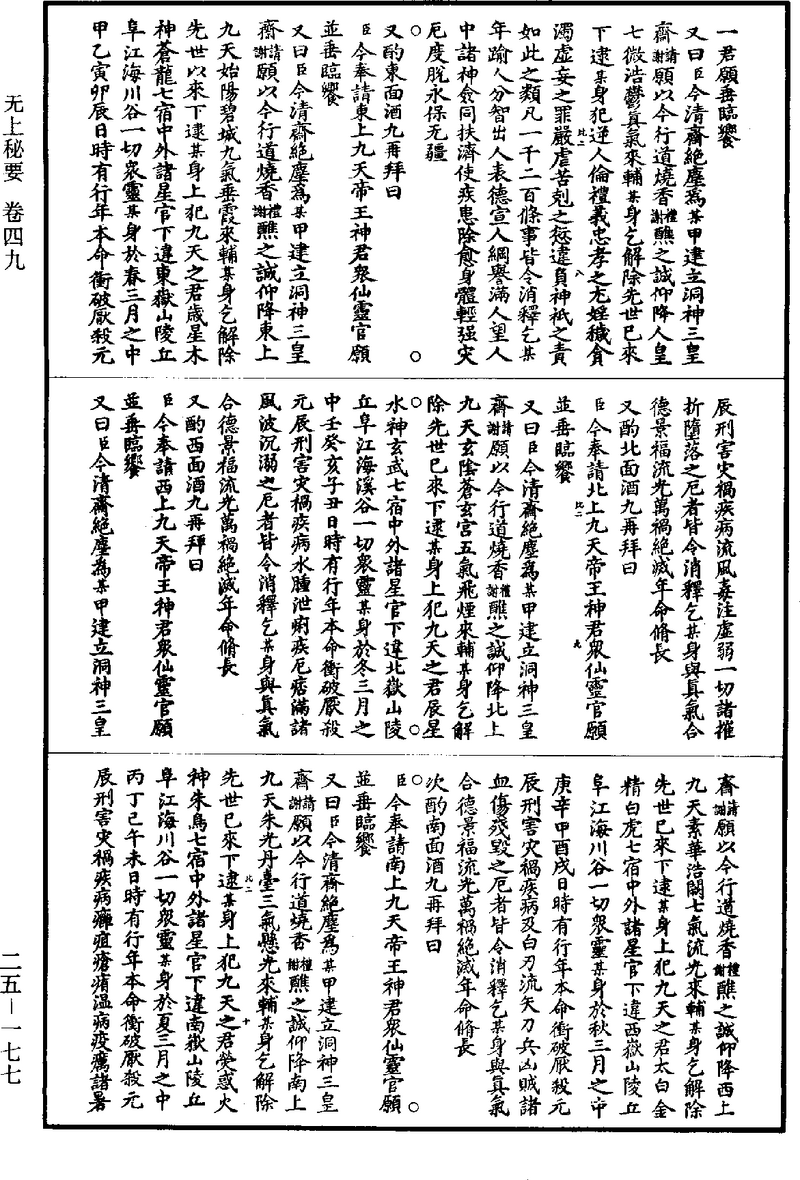 一君願垂臨饗
又曰臣今清齋絶塵爲某甲建立洞神三皇
齋請謝願以今行道燒香禮謝醮之誠仰降人皇
七微浩鬱真氣來輔某身乞解除先世已來
下逮某身犯逆人倫禮義忠孝之尤婬穢貪
濁虛妄之罪嚴虐苦剋之愆違負神祇之責
如此之類凡一千二百條事皆令消釋乞某
年踰人分智出人表德宣人綱譽滿人望人
中諸神僉同扶濟使疾患除愈身體輕强灾
厄度脫永保无疆
又酌東面酒九再拜曰
臣今奉請東上九天帝王神君衆仙靈官願
並垂臨饗
又曰臣今清齋絶塵爲某甲建立洞神三皇
齋請謝願以今行道燒香禮謝醮之誠仰降東上
九天始陽碧城九氣垂霞來輔某身乞解除
先世以來下逮某身上犯九天之君歲星木
神蒼龍七宿中外諸星官下違東嶽山陵丘
阜江海川谷一切衆靈某身於春三月之中
甲乙寅卯辰日時有行年本命衝破厭殺元
辰刑害灾禍疾病流風毒注虛弱一切諸摧
折墮落之厄者皆令消釋乞某身與真氣合
德景福流光萬禍絶滅年命脩長
又酌北面酒九再拜曰
臣今奉請北上九天帝王神君衆仙靈官願
並垂臨饗
又曰臣今清齋絶塵爲某甲建立洞神三皇
齋請謝願以今行道燒香禮謝醮之誠仰降北上
九天玄陰蒼玄宮五氣飛煙來輔某身乞解
除先世已來下逮某身上犯九天之君辰星
水神玄武七宿中外諸星官下違北嶽山陵
丘阜江海溪谷一切衆靈某身於冬三月之
中壬癸亥子丑日時有行年本命衝破厭殺
元辰刑害灾禍疾病水腫泄痢疾厄痞滿諸
風波沉溺之厄者皆令消釋乞某身與真氣
合德景福流光萬禍絶滅年命脩長
又酌西面酒九再拜曰
臣今奉請西上九天帝王神君衆仙靈官願
並垂臨饗
又曰臣今清齋絶塵爲某甲建立洞神三皇
齋請謝願以今行道燒香禮謝醮之誠仰降西上
九天素華浩闕七氣流光來輔某身乞解除
先世已來下逮某身上犯九天之君太白金
精白虎七宿中外諸星官下違西嶽山陵丘
阜江海川谷一切衆靈某身於秋三月之中
庚辛申酉戌日時有行年本命衝破厭殺元
辰刑害灾禍疾病及白刃流矢刀兵凶賊諸
血傷殘毀之厄者皆令消釋乞某身與真氣
合德景福流光萬禍絶滅年命脩長
次酌南面酒九再拜曰
臣今奉請南上九天帝王神君衆仙靈官願
並垂臨饗
又曰臣今清齋絶塵爲某甲建立洞神三皇
齋請謝願以今行道燒香禮謝醮之誠仰降南上
九天朱光丹臺三氣懸光來輔某身乞解除
先世已來下逮某身上犯九天之君熒惑火
神朱鳥七宿中外諸星官下違南嶽山陵丘
阜江海川谷一切衆靈某身於夏三月之中
丙丁巳午未日時有行年本命衝破厭殺元
辰刑害灾禍疾病癰疽瘡㿈温病疫癘諸暑
无上秘要 卷四九
二五—一七七